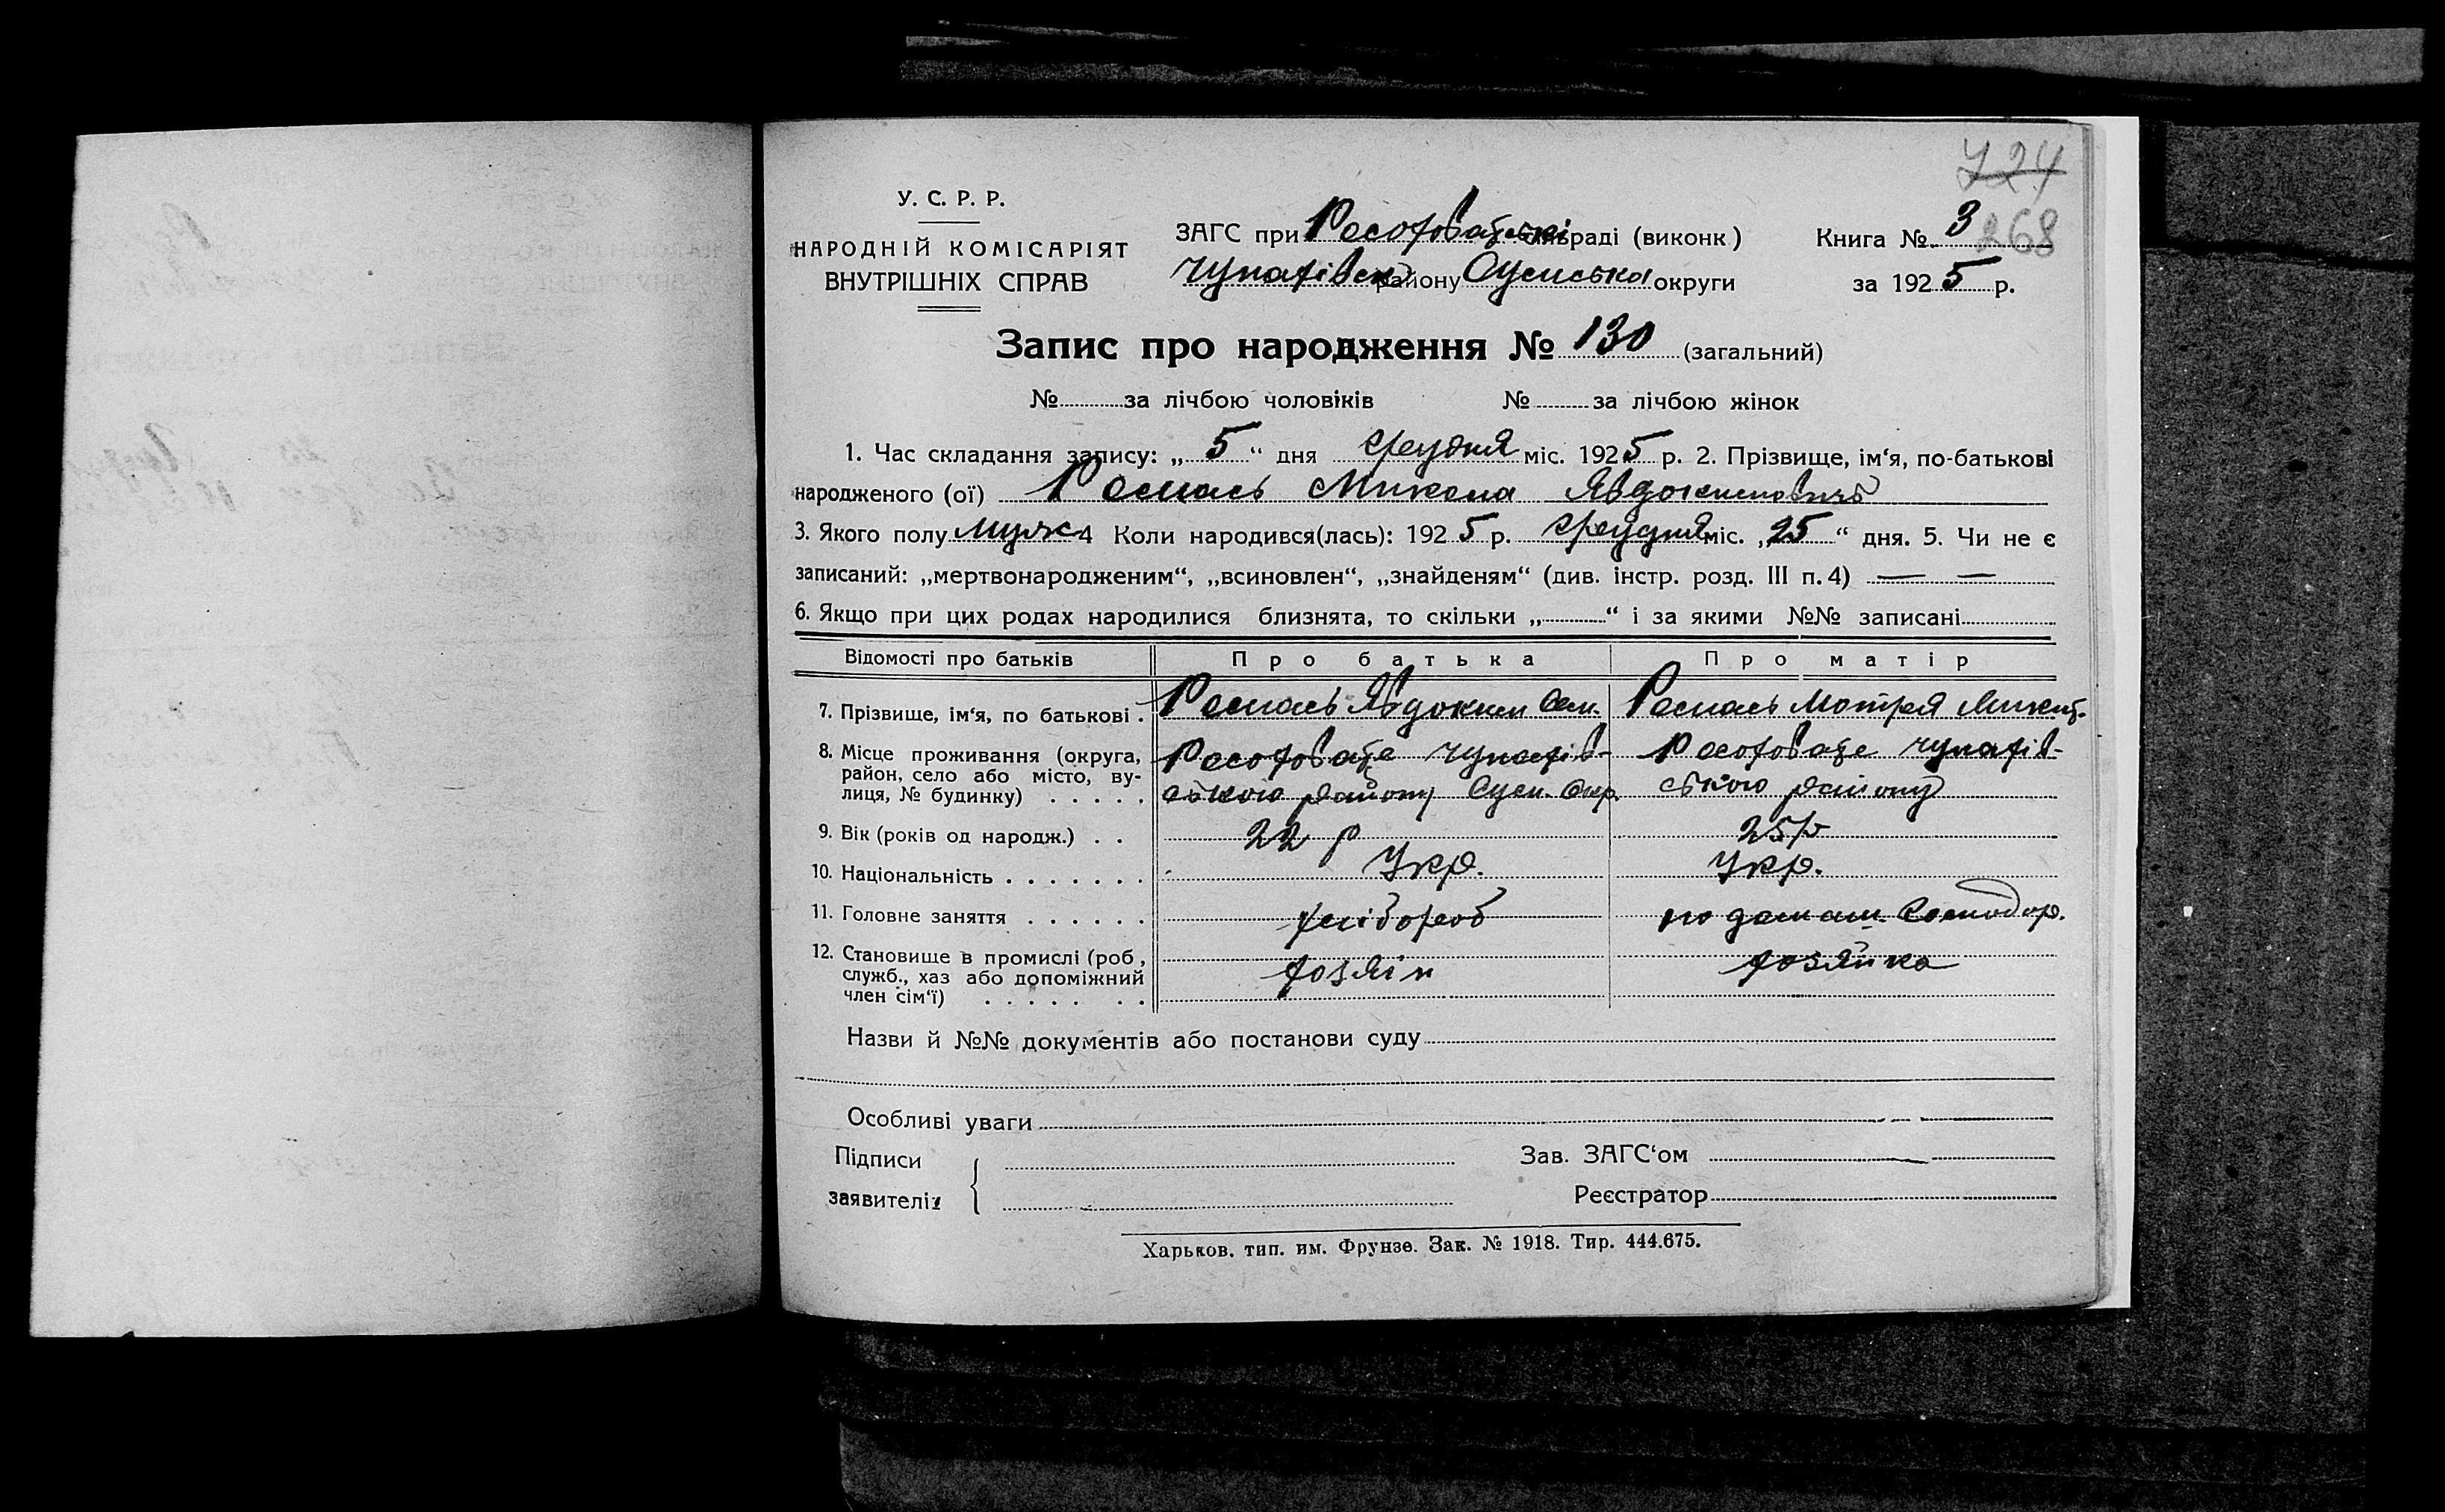 724
У. С. Р. Р.
НАРОДНІЙ КОМІСАРІЯТ
ВНУТРІШНІХ СПРАВ
ЗАГС при раді (виконк)
Чупахівськ району Сумська округи
Книга №. 3
268
за 1925 р.
Запис про народження № 130 (загальний)
№ за лічбою чоловіків № за лічбою жінок
1. Час складання запису: „ 5 “ дня грудня міс. 1925 р. 2. Прізвище, ім‘я, по-батькові
народженого (ої) Микола Явдокимовичь
3. Якого полу муж 4 Коли народився(лась): 1925 р. грудня міс. „25 “ дня. 5. Чи не є
записаний: „мертвонародженим“, „всиновлен“, „знайденям“ (див. інстр. розд. III п. 4) — —
6. Якщо при цих родах народилися близнята, то скільки „ “ і за якими №№ записані
Відомості про батьків Про батька Про матір
7. Прізвище, ім‘я, по батькові . Явдоким Сем. Мотря Микит.
8. Місце проживання (округа, район, село або місто, вулиця, № будинку) . . . . . Чупахів- Чупахів-
ського району Сум. Окр. ського району
9. Вік (років од народж.) . . 22 р 25 р
10. Національність . . . . . . . Укр. Укр.
11. Головне заняття . . . . . . хлібороб по домаш. Господар.
12. Становище в промислі (роб, служб., хаз або допоміжний член сім‘ї) . . . . . . . хозяін хозяйка
Назви й №№ документів або постанови суду
Особливі уваги
Підписи Зав. ЗАГС‘ом
заявителів Реєстратор
Харьков. тип. им. Фрунзе. Зак. № 1918. Тир. 444.675.